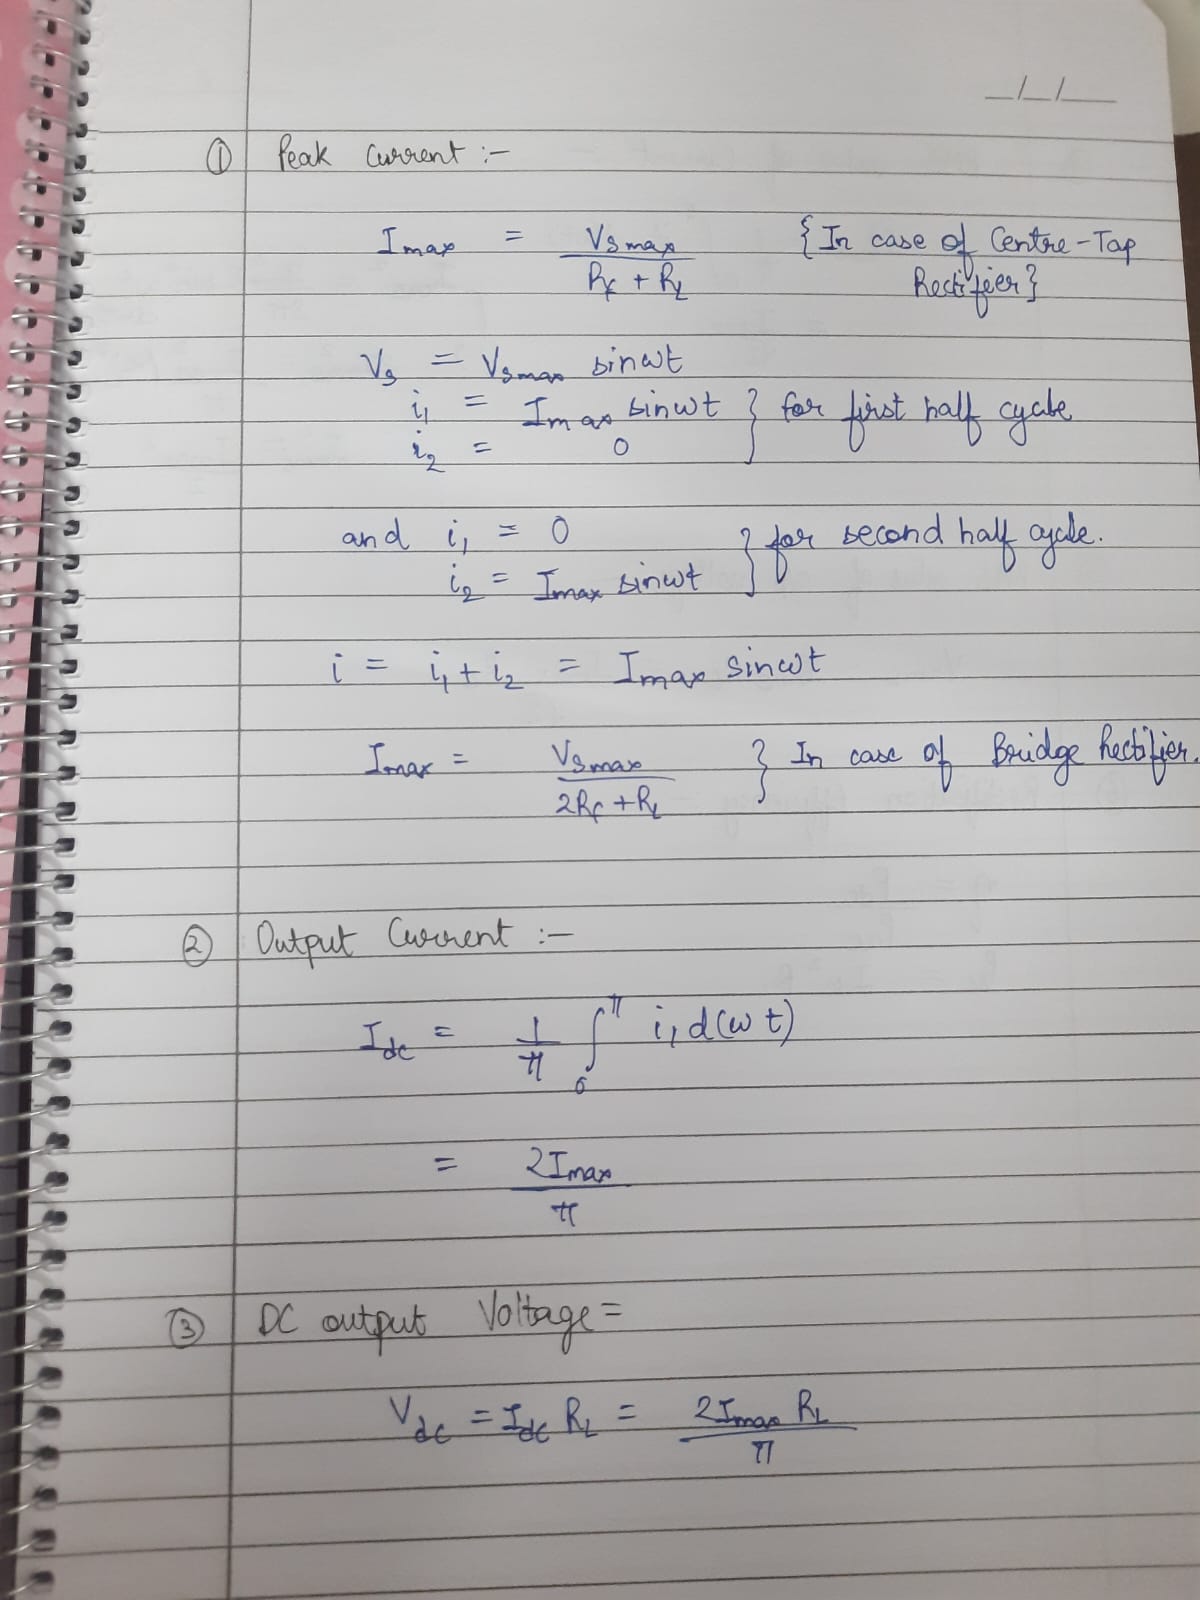 _/_/__
① Peak Current :-
Imax = Vsmax / (Rf + RL) {In case of Centre-Tap
Rectifier}
Vs = Vsmax sinωt
i1 = Imax sinωt } for first half cycle
i2 = 0
and i1 = 0 } for second half cycle.
i2 = Imax sinωt
i = i1 + i2 = Imax sinωt
Imax = Vsmax / (2Rf + RL) } In case of Bridge Rectifier.
② Output Current :-
Idc = 1/π ∫₀^π i1 d(ωt)
= 2Imax / π
③ DC output Voltage =
Vdc = Idc RL = 2Imax RL / π